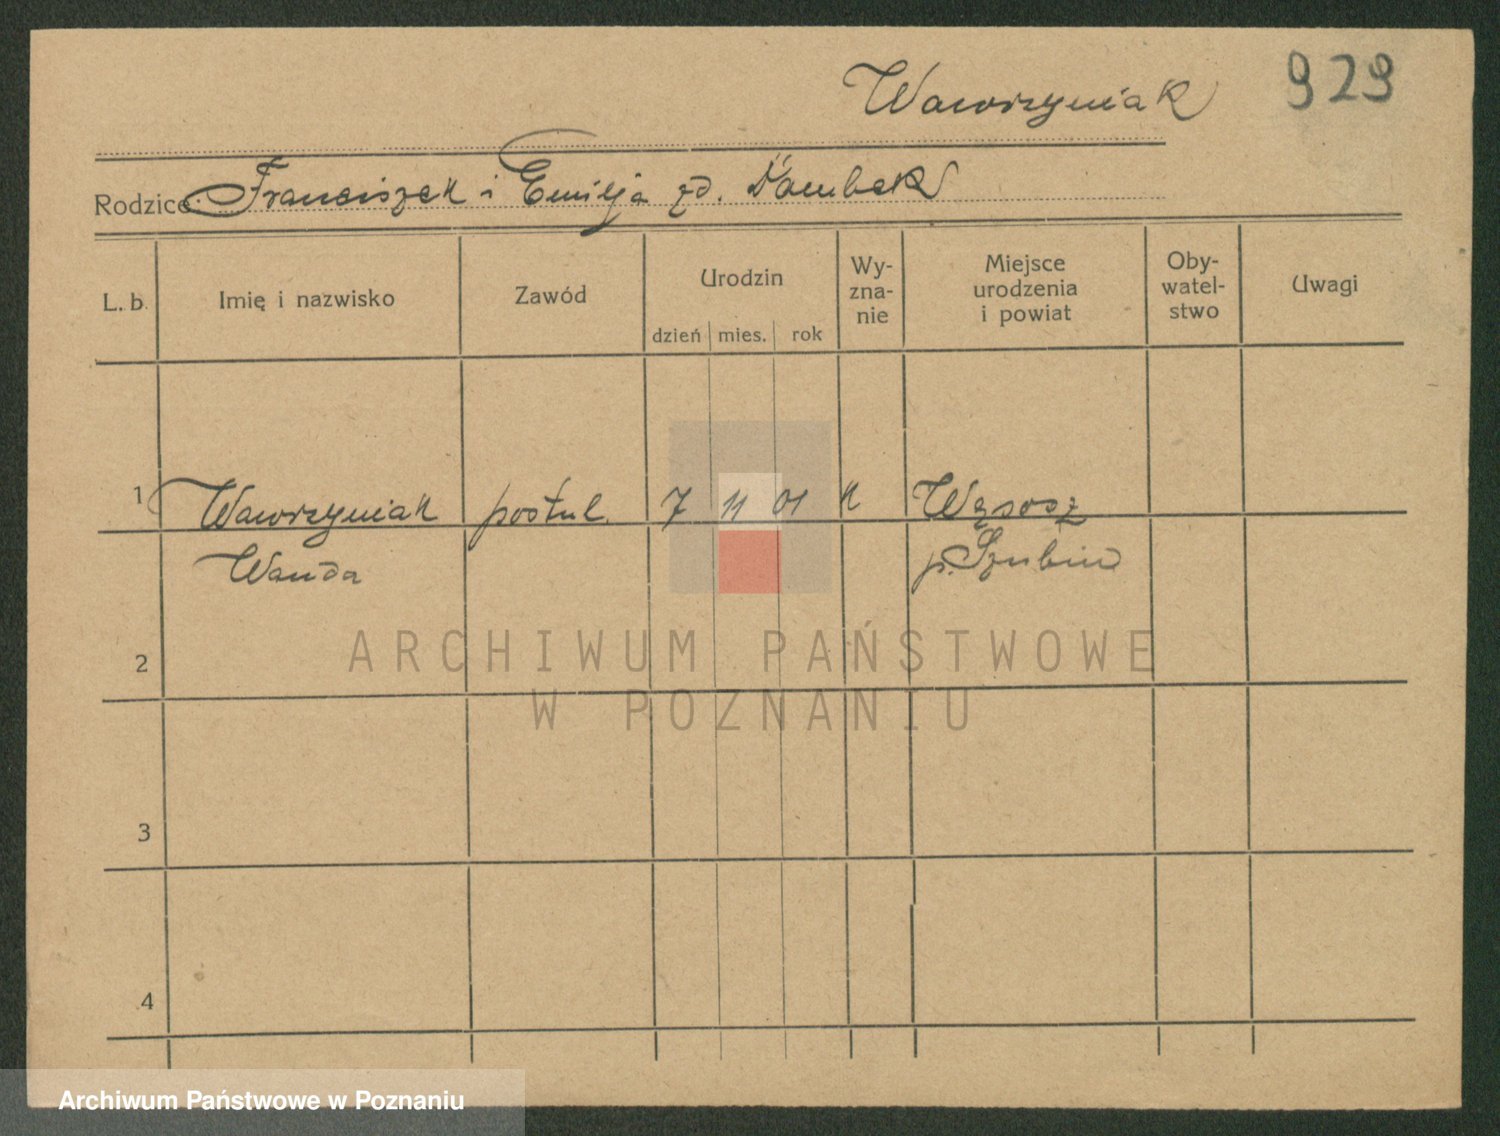 Wawrzyniak 929
Rodzice: Franciszek i Emilja zd. Dambek
L. b. Imię i nazwisko Zawód Urodzin dzień mies. rok Wy-zna-nie Miejsce urodzenia i powiat Oby-watel-stwo Uwagi
1 Wawrzyniak postul. 7 11 01 k Wąsosz
Wanda p. Szubin
2
ARCHIWUM PAŃSTWOWE
W POZNANIU
3
4
Archiwum Państwowe w Poznaniu